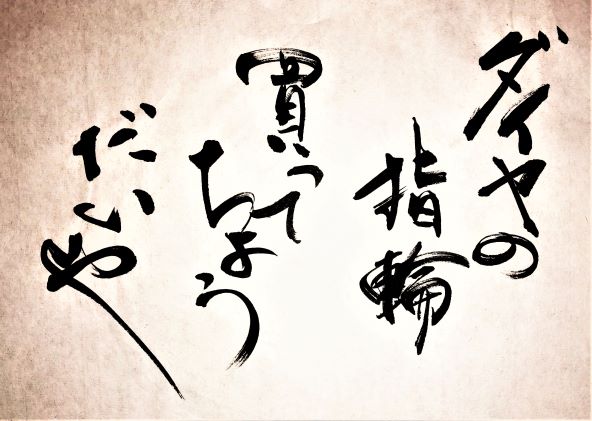 ダイヤの
指輪
買って
ちょう
だいや